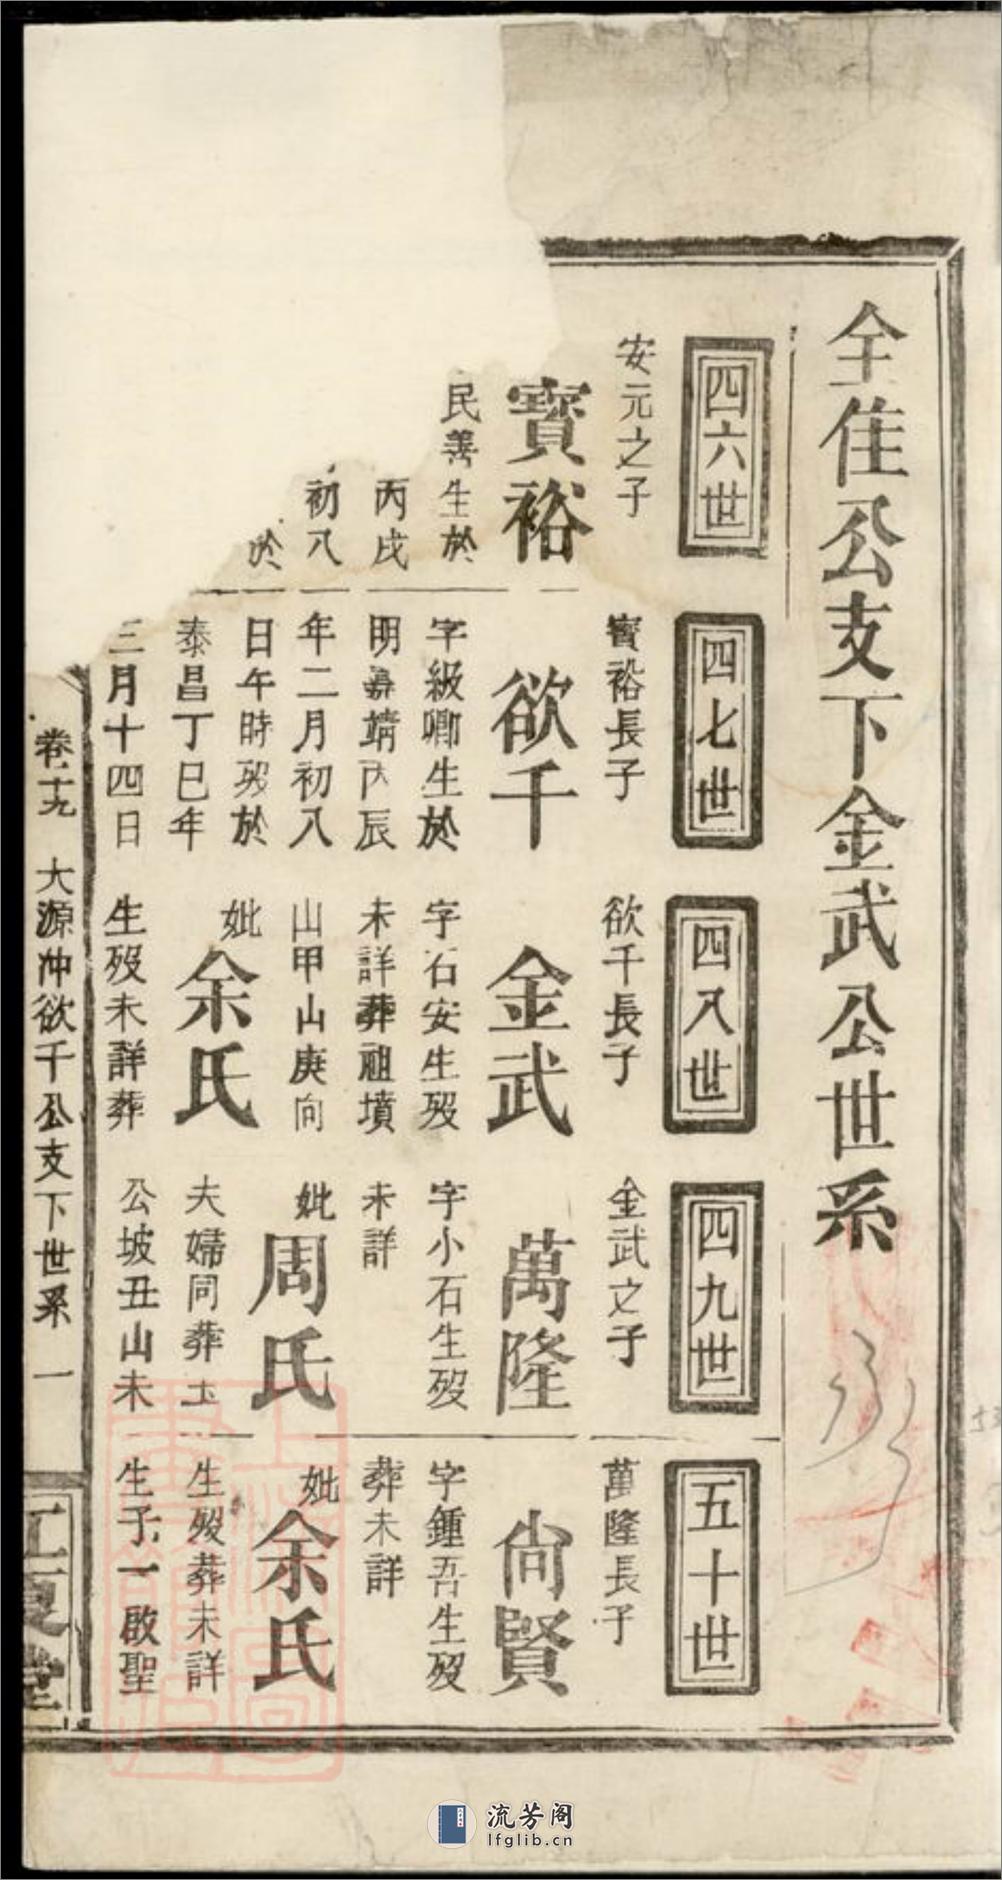 全佳公支下金武公世系
四六世
安元之子
寶裕
民善生於
丙戌
初八
於
四七世
寶裕長子
欲千
字級卿生於
明嘉靖丙辰
年二月初八
日午時歿於
泰昌丁巳年
三月十四日
四八世
欲千長子
金武
字石安生歿
未詳葬祖墳
山甲山庚向
妣
余氏
生歿未詳葬
四九世
金武之子
萬隆
字小石生歿
未詳
妣
周氏
夫婦同葬玉
公坡丑山未
五十世
萬隆長子
尙賢
字鍾吾生歿
葬未詳
妣
余氏
生歿葬未詳
生子一啟聖
卷十九 大源冲欲千公支下世系 一
江夏堂
上海圖書館藏
流芳阁
lfglib.cn